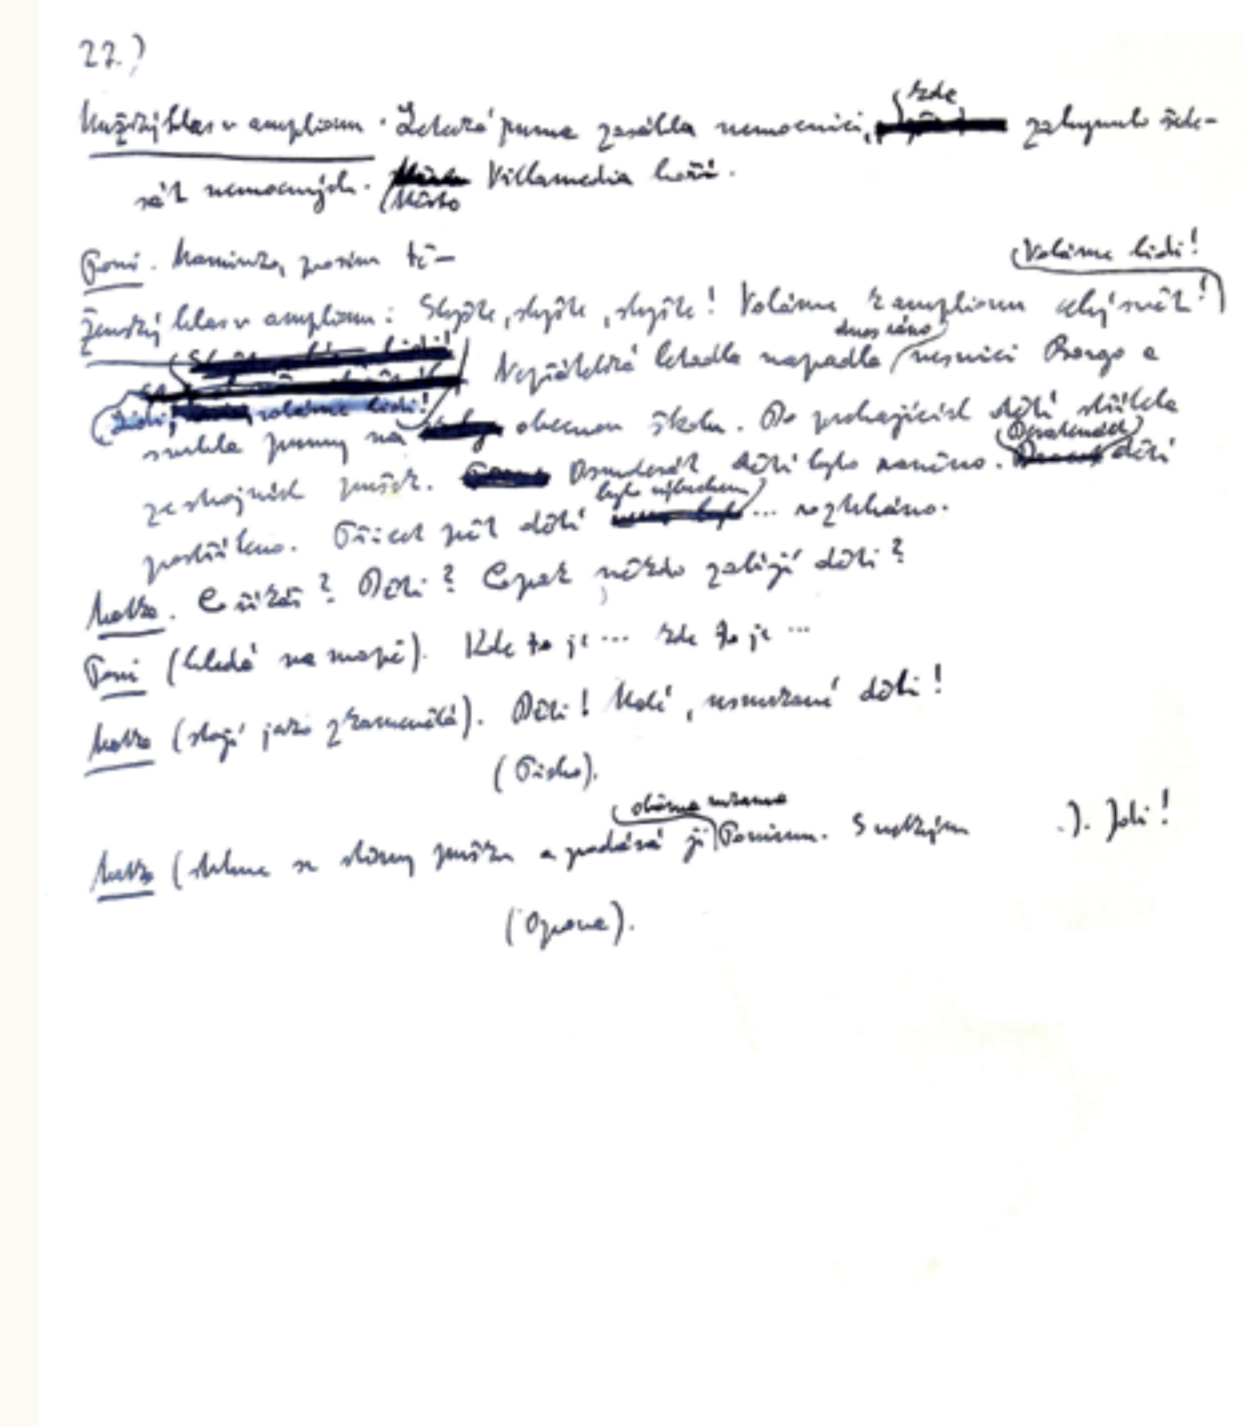 22.)
Mužský hlas v amplionu. Letecká puma zasáhla nemocnici, zde zahynulo šede-
sát nemocných. Město Villamedia hoří.
Toni. Maminko, prosím tě—
Volám lidi!
Ženský hlas v amplionu: Slyšte, slyšte, slyšte! Voláme k amplionu celý svět!
Nepřátelská letadla napadla dnes ráno vesnici Borgo a
Lidi, voláme lidi!
svrhla pumy na obecnou školu. Do prchajících dětí střílela
ze strojních pušek. Osmdesát dětí bylo raněno. Devatenáct dětí
postříleno. Třicet pět dětí bylo výbuchem ... roztrháno.
Matka. Co říkáš? Děti? Copak někdo zabíjí děti?
Toni (hledá na mapě). Kde to je ... kde to je ...
Matka (stojí jako zkamenělá). Děti! Malé, usmrkané děti!
(Ticho).
Matka (strhne se stěny pušku a podává ji oběma rukama Tonimu. S velkým .). Jdi!
(Opona).